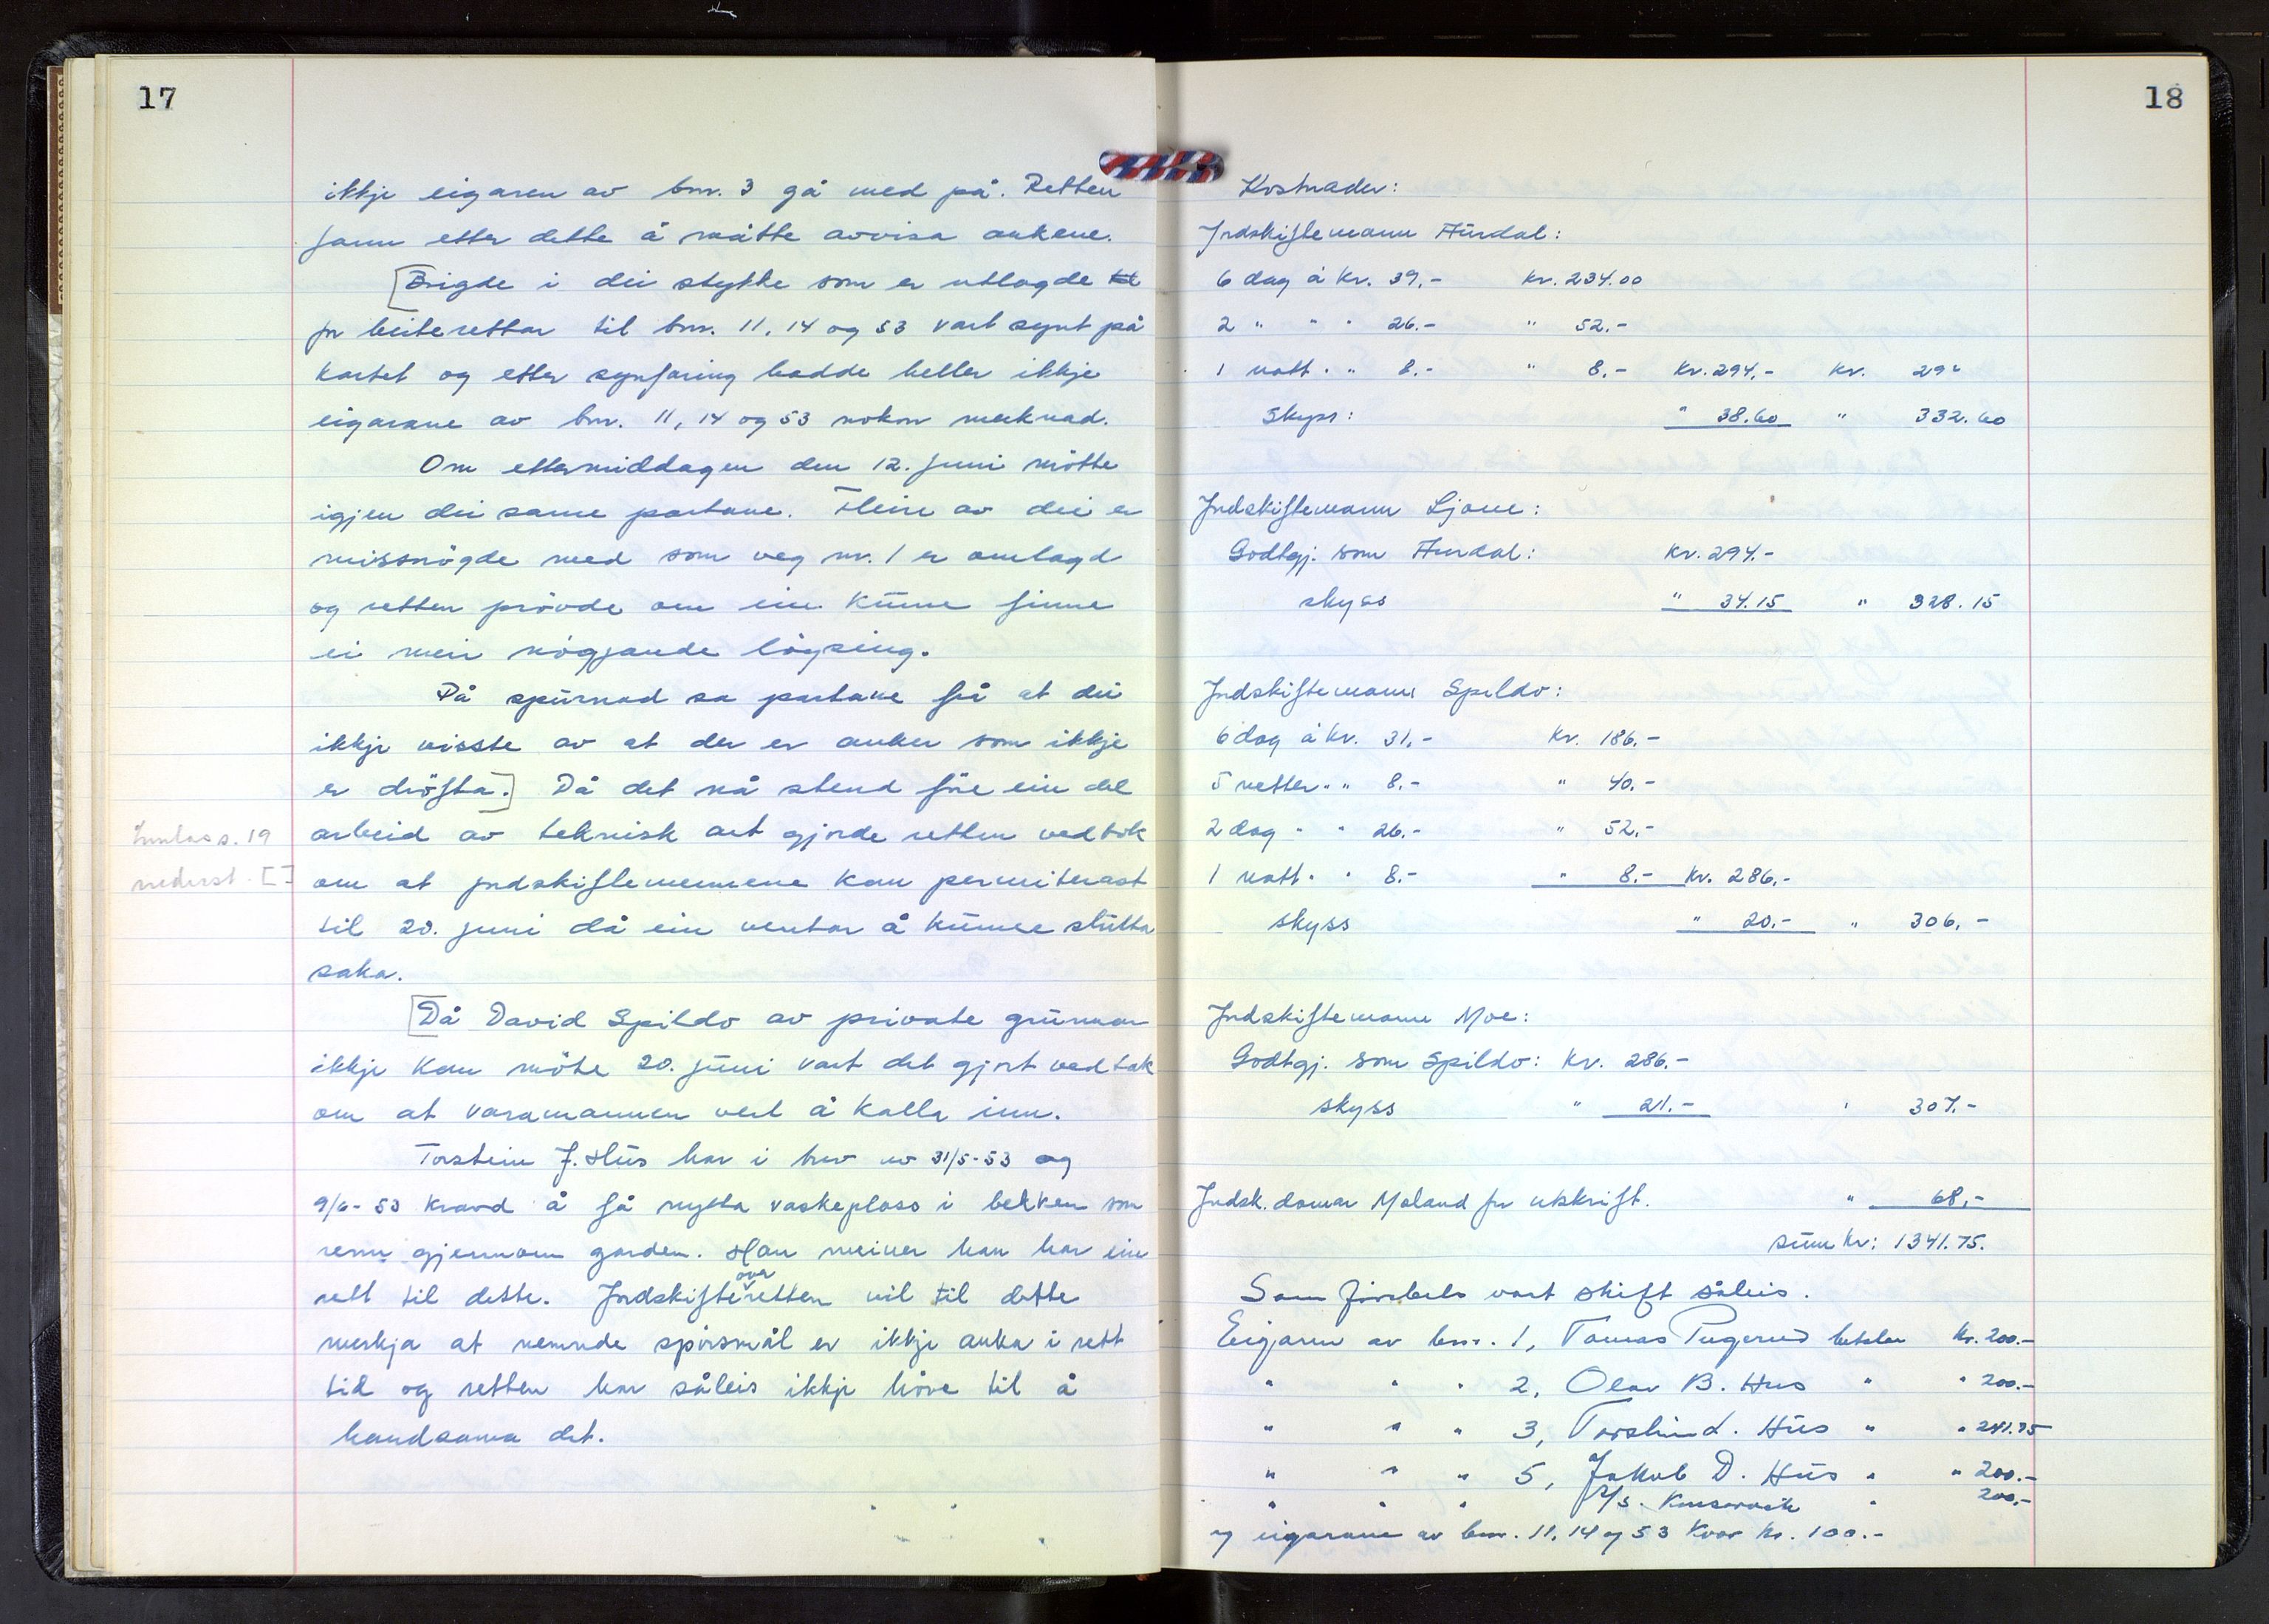 17
ikkje eigaren av bnr. 3 gå med på. Retten
fann etter dette å måtte avvisa ankene.
[Brigde i dei stykke som er utlagde
for beiterettar til bnr. 11, 14 og 53 vart synt på
kartet og etter synfaring hadde heller ikkje
eigarane av bnr. 11, 14 og 53 nokon merknad.
Om ettermiddagen den 12. juni møtte
igjen dei same partane. Fleire av dei er
missnögde med som veg nr. 1 er omlagd
og retten prövde om ein kunne finne
ei meir nögjande löysing.
På spurnad sa partane frå at dei
ikkje visste av at der er anker som ikkje
er dröfta.] Då det nå stend före ein del
arbeid av teknisk art gjorde retten vedtak
om at jordskiftemennene kan permiterast
til 20. juni då ein ventar å kunne slutta
saka.
[Då David Spildo av private grunnar
ikkje kan möte 20. juni vart det gjort vedtak
om at varamannen vert å kalla inn.
Torstein J. Hus har i brev av 31/5-53 og
9/6-53 kravd å få nytta vaskeplass i bekken som
renn gjennom garden. Han meiner han har ein
rett til dette. Jordskifteoverretten vil til dette
merkja at nemnde spörsmål er ikkje anka i rett
tid og retten har såleis ikkje höve til å
handsama det.
s. 19
nederst. []
18
Kostnader:
Jordskiftemann Hurdal:
6 dag à kr. 39.- kr. 234.00
2 " " " 26.- " 52.-
1 natt " " 8.- " 8.- kr. 294.- kr. 294
Skyss: " 38.60 " 332.60
Jordskiftemann Ljone:
Godtgj. som Hurdal: kr. 294.-
skyss " 34.15 " 328.15
Jordskiftemann Spildo:
6 dag à kr. 31.- kr. 186.-
5 netter " " 8.- " 40.-
2 dag " " 26.- " 52.-
1 natt " " 8.- " 8.- kr. 286.-
skyss " 20.- " 306.-
Jordskiftemann Moe:
Godtgj. som Spildo: kr. 286.-
skyss " 21.- " 307.-
Jordsk. domar Moland for utskrift. " 68.-
sum kr: 1341.75.
Som vart skift såleis.
Eigaren av bnr. 1, Tomas betalar kr. 200.-
" " " 2, Olav B. Hus " " 200.-
" " " 3, Hus " " 241.75
" " " 5, Jakob D. Hus " " 200.-
" " " A/S. " 200.-
og eigarane av bnr. 11, 14 og 53 kvar kr. 100.-